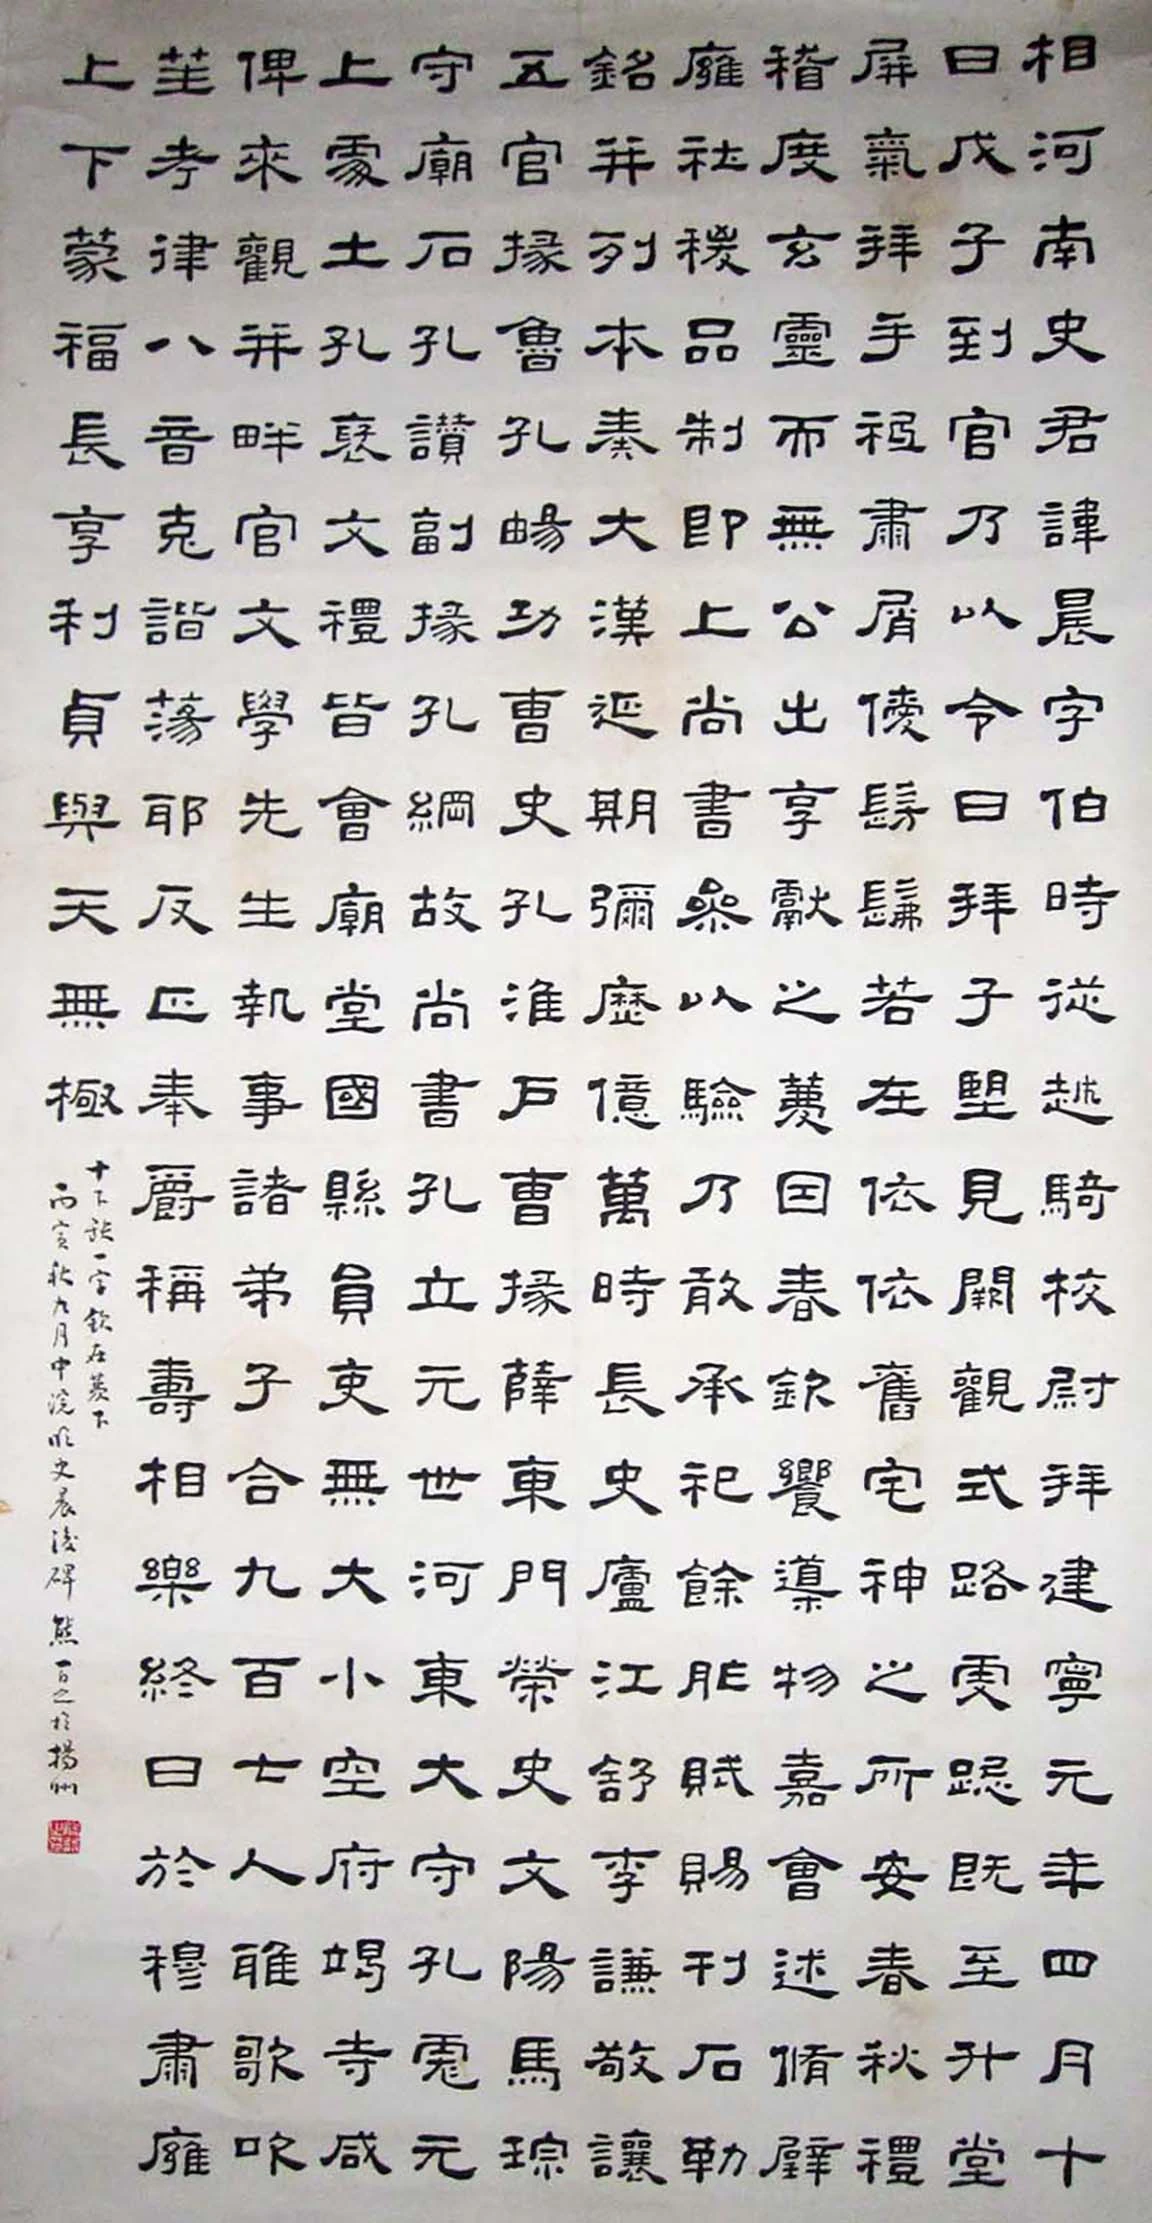 相河南史君諱晨字伯時從越騎校尉拜建寧元年四月十
日戊子到官乃以令日拜孑聖見闕觀式路虔跽既至升堂
屏氣拜手祗肅屑僾髣髴若在依依舊宅神之所安春秋禮
稽度玄靈而無公出享獻之薦因春飲饗導物嘉會述脩辟
廱社稷品制即上尚書參以驗乃敢承祀餘胙賦賜刊石勒
銘并列本奏大漢延期彌歷億萬時長史廬江舒李謙敬讓
五官掾魯孔暢功曹史孔淮戶曹掾薛東門榮史文陽馬琮
守廟百石孔讃副掾孔綱故尚書孔立元世河東大守孔彪元
上處土孔褒文禮皆會廟堂國縣員吏無大小空府竭寺咸
俾來觀并畔官文學先生執事諸弟子合九百七人雅歌吹
笙考律八音克諧蕩耶反正奉爵稱壽相樂終日於穆肅廱
上下蒙福長享利貞與天無極
十下 一字 在 下
丙寅秋九月中浣臨史晨後碑 熊百之於揚州